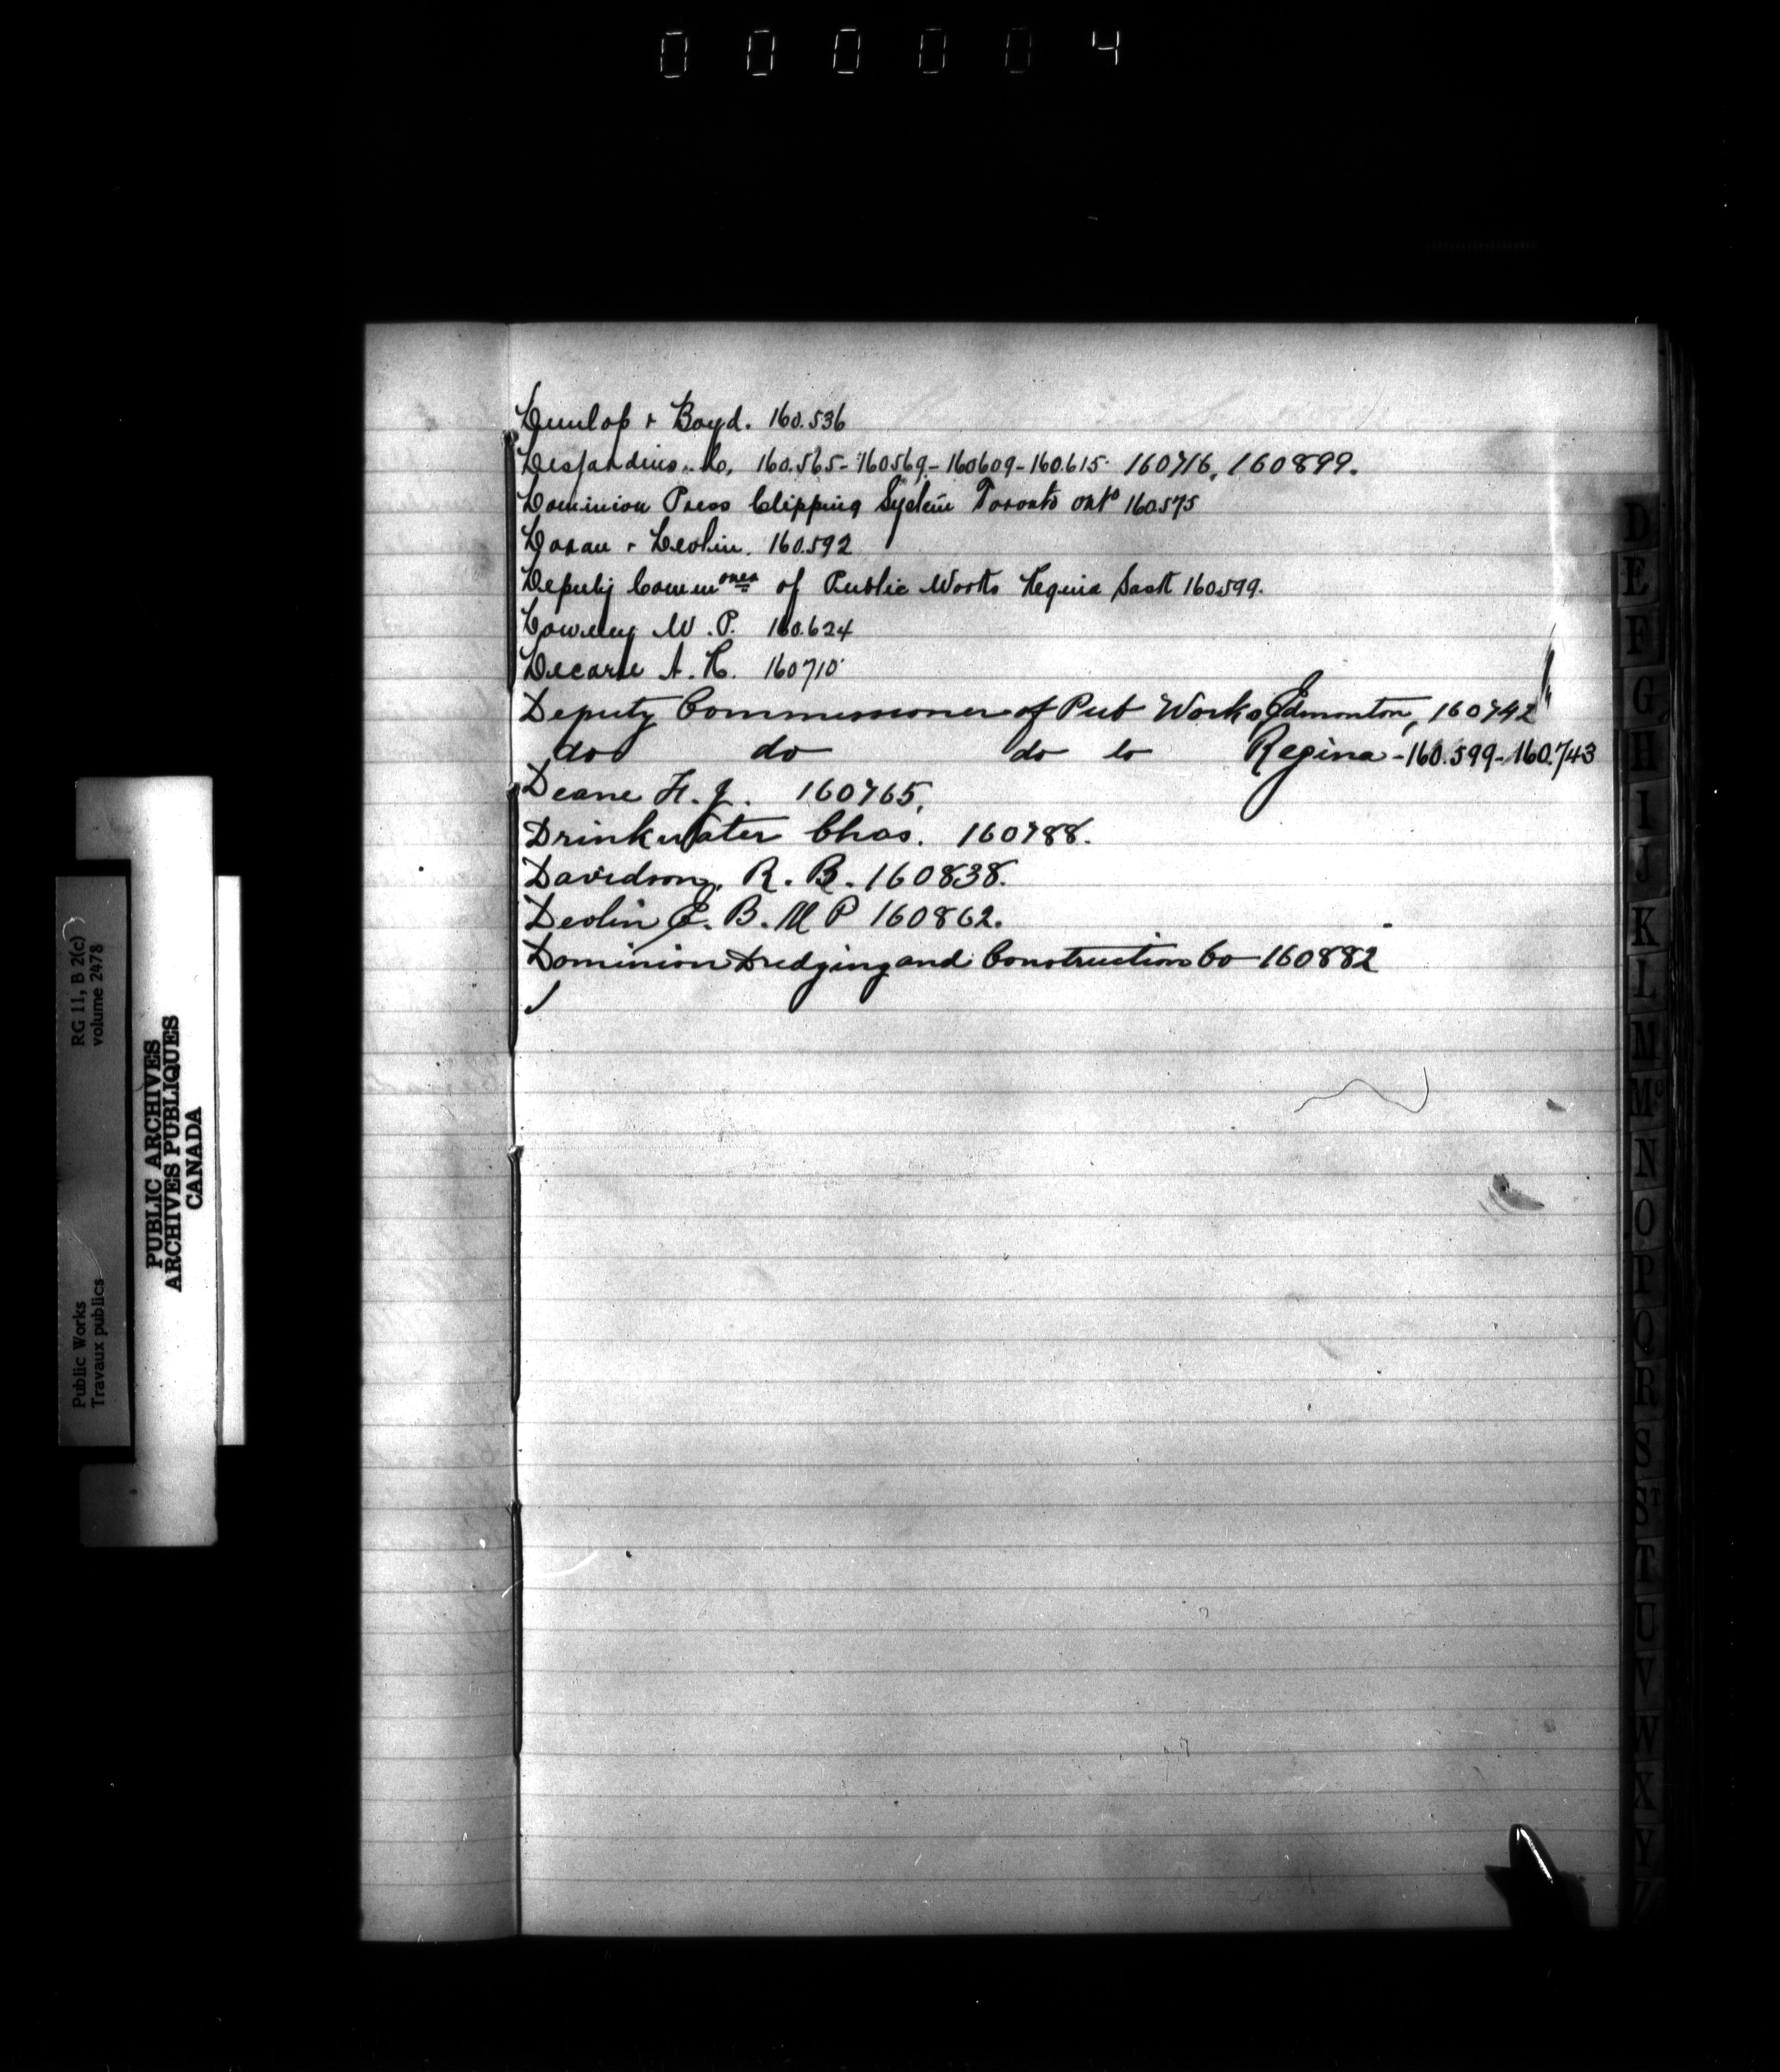 000004
Dunlop & Boyd. 160.536
Desjardins. Co, 160.565-160569-160609-160.615. 160716, 160899.
Dominion Press Clipping System Toronto Onto 160.575
Doran & Devlin. 160.592
Deputy Commoner of Public Works Regina Sask 160.599.
Downey W. P. 160.624
Decarie A. H. 160710
Deputy Commissioner of Pub Works Edmonton, 160742
do do do to Regina-160.599-160.743
Deane F. J. 160765,
Drinkwater Chas. 160788.
Davidson, R. B. 160838.
Devlin E. B. M P 160862.
Dominion Dredging and Construction Co 160882
D
E
F
G
H
I
J
K
L
M
Mc
N
O
P
Q
R
S
ST
T
U
V
W
X
Y
Z
RG 11, B 2(c)
volume 2478
Public Works
Travaux publics
PUBLIC ARCHIVES
ARCHIVES PUBLIQUES
CANADA